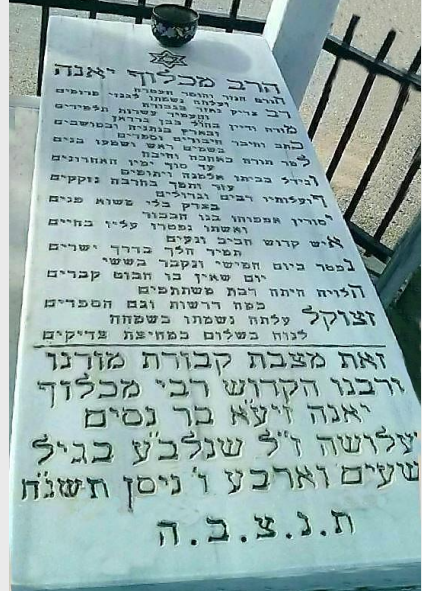 הרב מכלוף יאנה
הורם הנזר והוסר העטרה
ועלתה נשמתו לגנזי מרומים
רב צדיק נאזר בגבורה
והעמיד עשרות תלמידים
מורה ודיין בחו"ל בבן גרדאן
ובארץ בנתניה ובמושבים
כתב וחיבר חיבורים וספרים
בשמים ראש ושמעו בנים
למד תורה באהבה וחיבה
עד סוף ימיו האחרונים
וגידל בביתו אלמנה ויתומים
עזר ותמך בהרבה נזקקים
פעולותיו רבים וגדולים
בצדק בלי משוא פנים
יסורין אפפוהו בנו הבכור
ואשתו נפטרו עליו בחיים
איש קדוש חביב ונעים
תמיד הלך בדרך ישרים
נפטר ביום חמישי ונקבר בששי
יום שאין בו חבוט קברים
הלויה היתה רבת משתתפים
כמה דרשות וגם הספדים
זצוקל עלתה נשמתו בשמחה
לנוח בשלום במחיצת צדיקים
זאת מצבת קבורת מורנו
ורבנו הקדוש רבי מכלוף
יאנה זיע"א בר נסים
עלושה ז"ל שנלב"ע בגיל
תשעים וארבע ו' ניסן תשנ"ח
ת.נ.צ.ב.ה